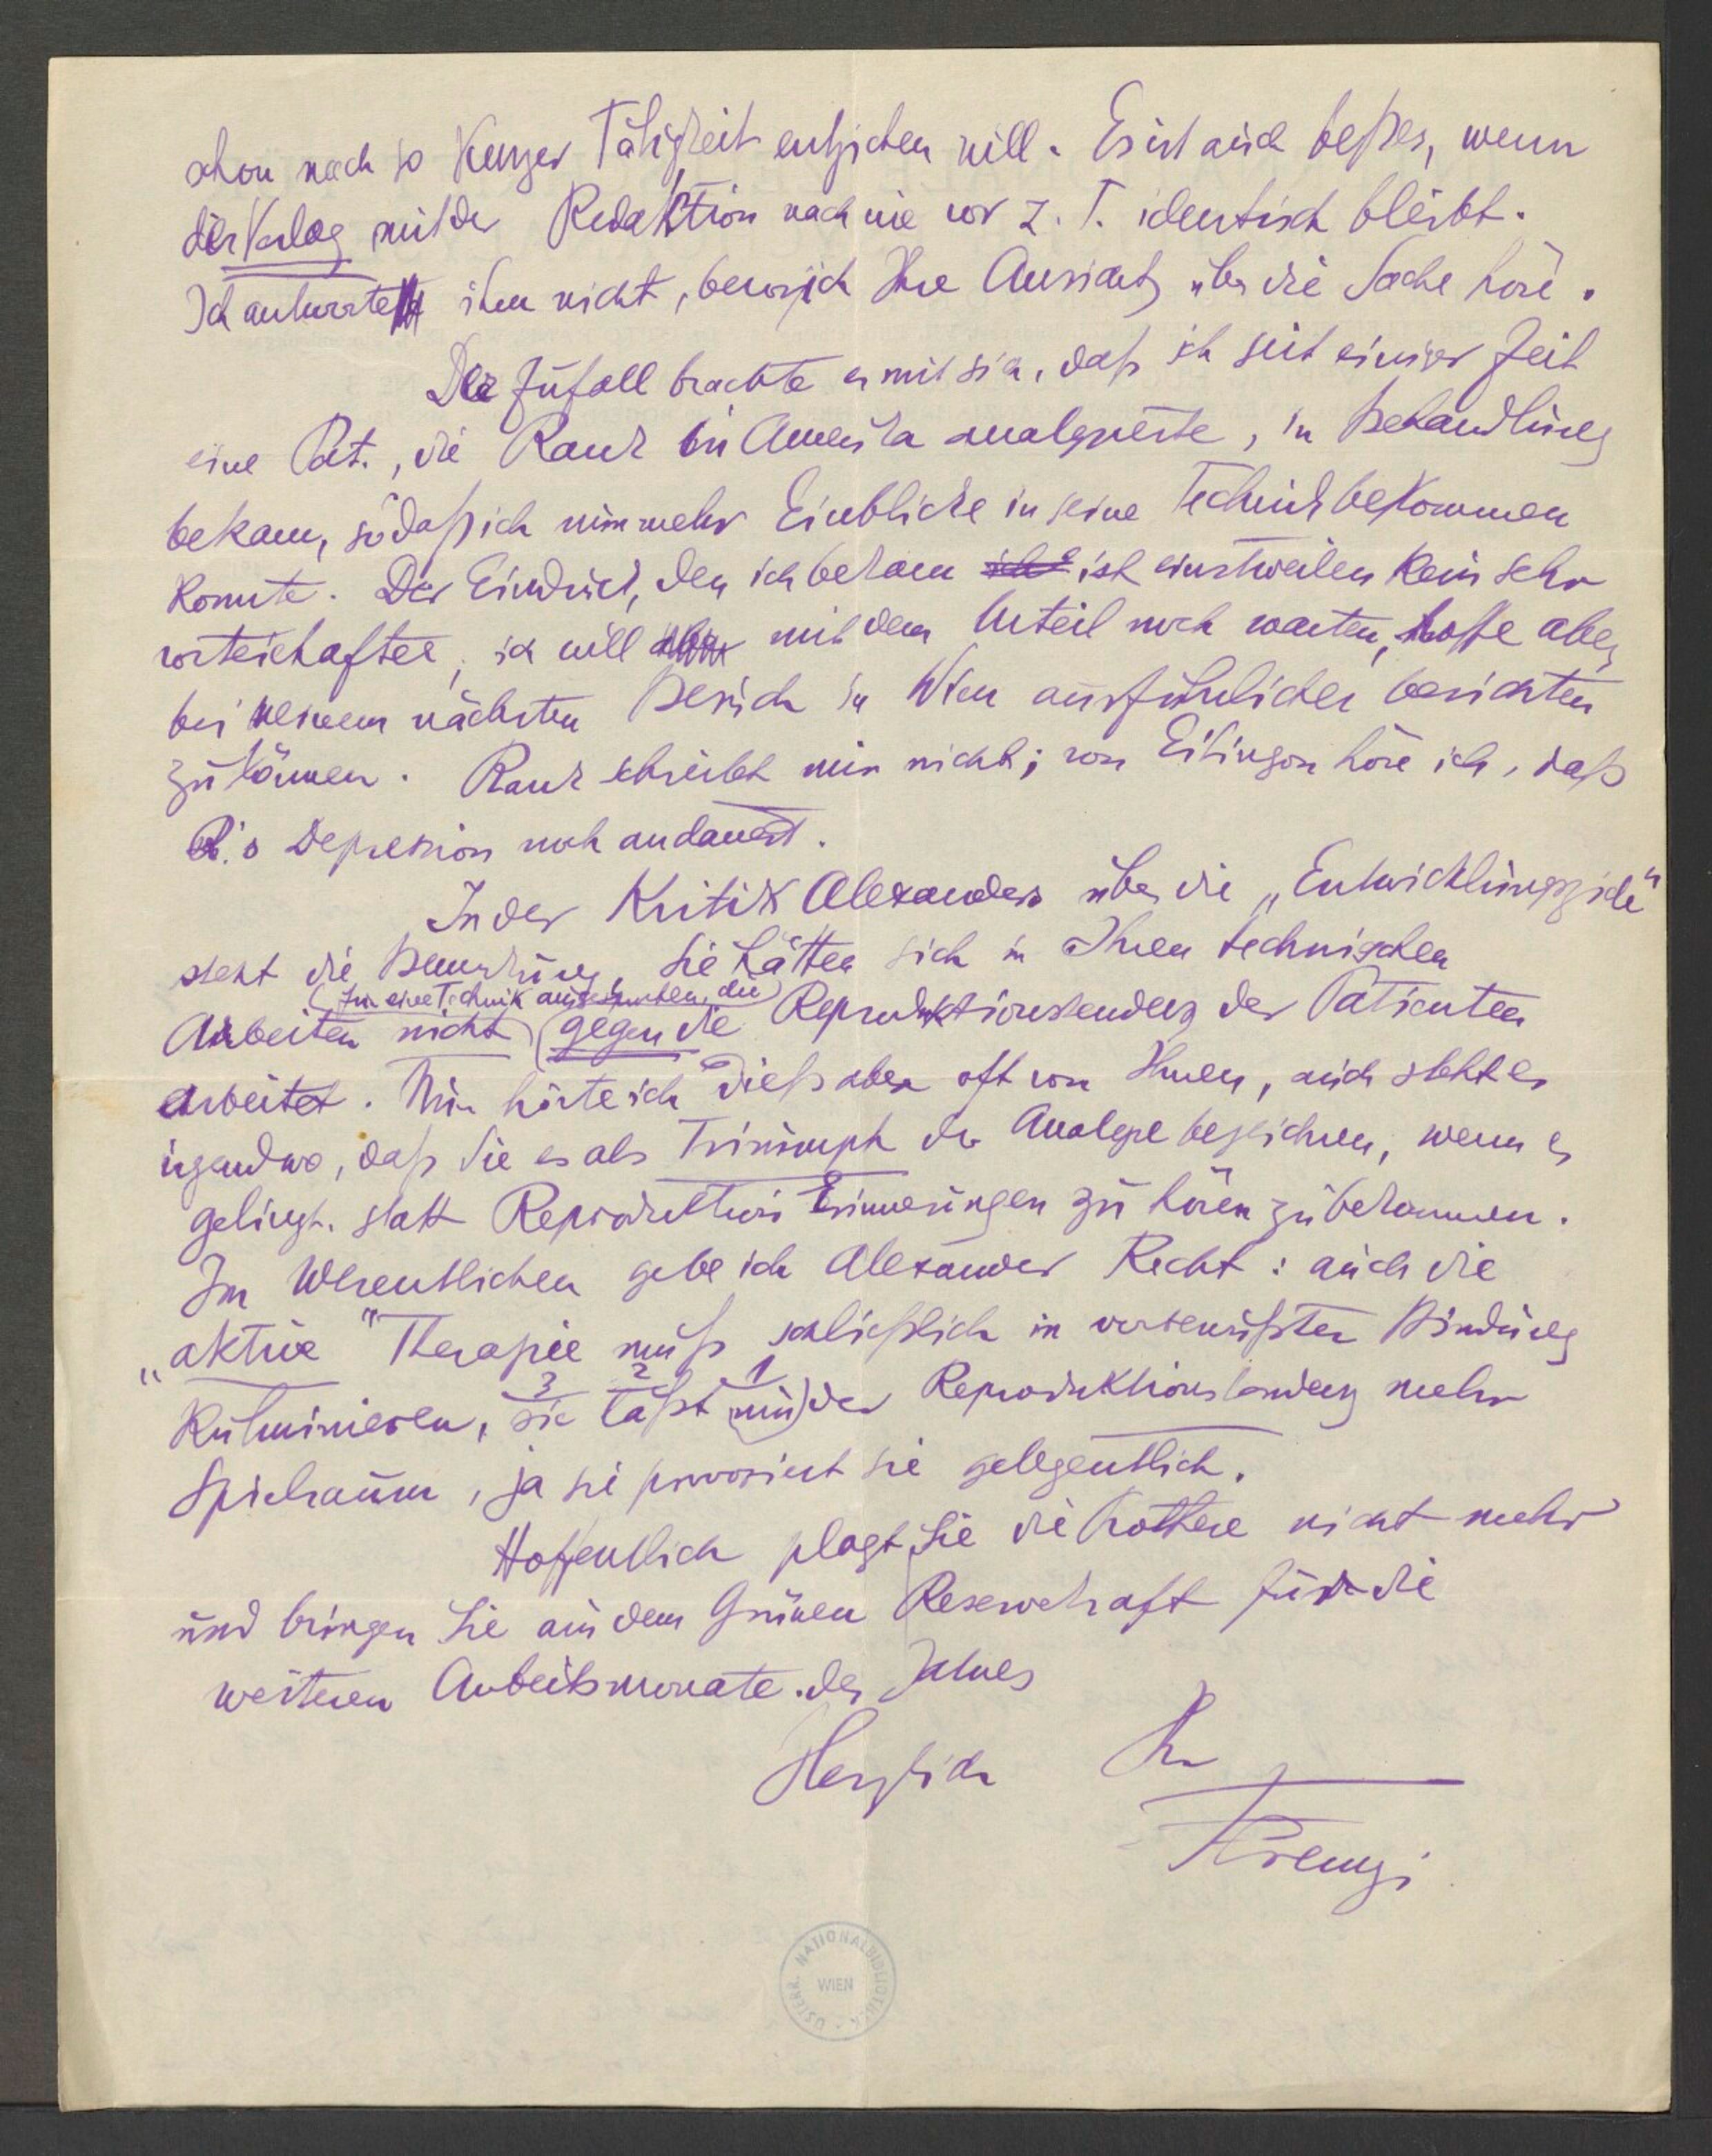 schon nach so kurzer Tätigkeit entziehen will. Es ist auch beßer, wenn
der Verlag mit der Redaktion nach wie vor z. T. identisch bleibt.
Ich antworte ihm nicht, bevor ich Ihre Ansicht über die Sache höre.
Der Zufall brachte es mit sich, daß ich seit einiger Zeit
eine Pat., die Rank in Amerika analysierte, in Behandlung
bekam, sodaß ich nunmehr Einblicke in seine Technik bekommen
konnte. Der Eindruck, den ich bekam ist einstweilen kein sehr
vorteilhafter; ich will mit dem Urteil noch warten, hoffe aber,
bei meinem nächsten Besuch in Wien ausführlicher berichten
zu können. Rank schreibt mir nicht; von Eitingon höre ich, daß
R.'s Depression noch andauert.
In der Kritik Alexanders über die „Entwicklungsziele"
steht die Bemerkung, Sie hätten sich in Ihren technischen
(für eine Technik ausgesprochen, die)
Arbeiten nicht gegen die Reproduktionstendenz der Patienten
arbeitet. Nun hörte ich dieß aber oft von Ihnen, auch steht es
irgendwo, daß Sie es als Triumph der Analyse bezeichnen, wenn es
gelingt, statt Reproduktion Erinnerungen zu hören zu bekommen.
Im Wesentlichen gebe ich Alexander Recht: auch die
„aktive" Therapie muß schließlich in verbewußter Bindung
3 2 1
kulminieren, sie läßt nur der Reproduktionstendenz mehr
Spielraum, ja sie provoziert sie gelegentlich.
Hoffentlich plagt Sie die Prothese nicht mehr
und bringen Sie aus dem Grünen Reservekraft für die
weiteren Arbeitsmonate des Jahres
Herzlich Ihr
Ferenczi
ÖSTERR. NATIONALBIBLIOTHEK
WIEN